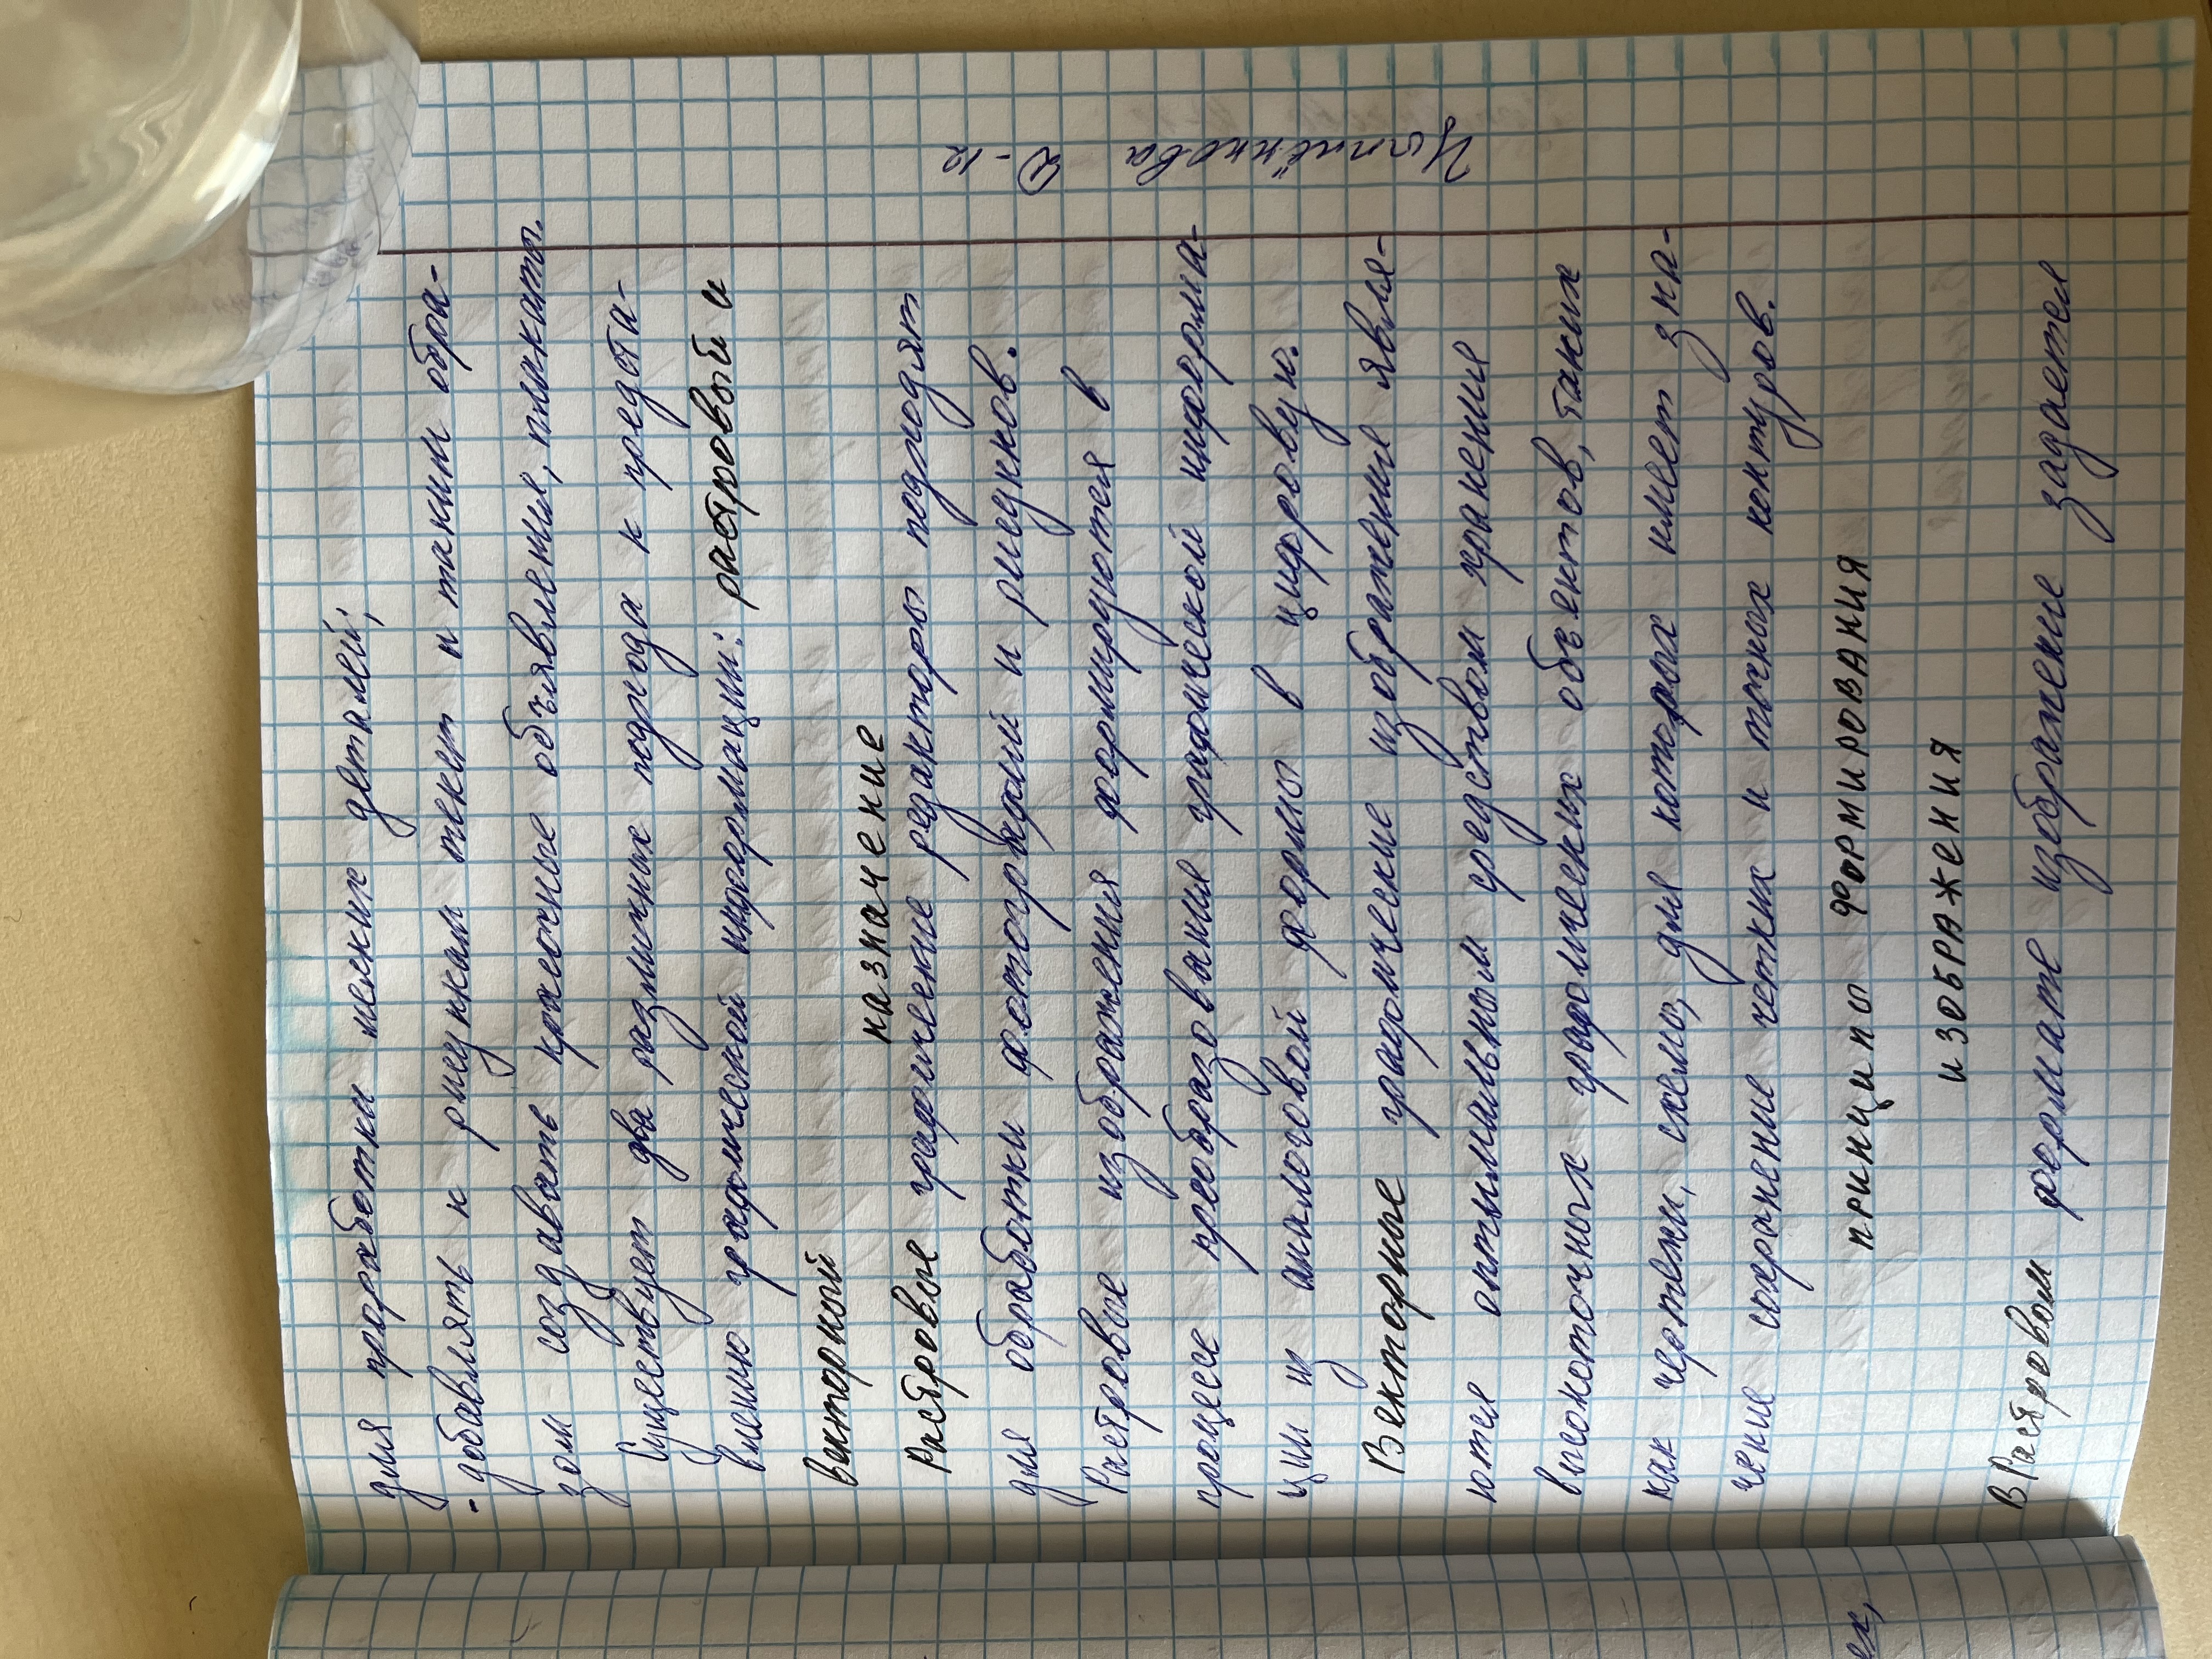 для проработки мелких деталей;
- добавлять к рисункам текст и таким обра-
зом создавать красочные объявления, плакаты.
Существует два различных подхода к предста-
влению графической информации: растровый и
векторный
назначение
Растровые графические редакторы подходят
для обработки фотографий и рисунков.
Растровые изображения формируются в
процессе преобразования графической информа-
ции из аналоговой формы в цифровую.
Векторные графические изображения явля-
ются оптимальным средством хранения
высокоточных графических объектов, таких
как чертежи, схемы, для которых имеет зна-
чение сохранение четких и точных контуров.
принципы формирования
изображения
В Растровом формате изображение задается
Цыплёнкова Д-12